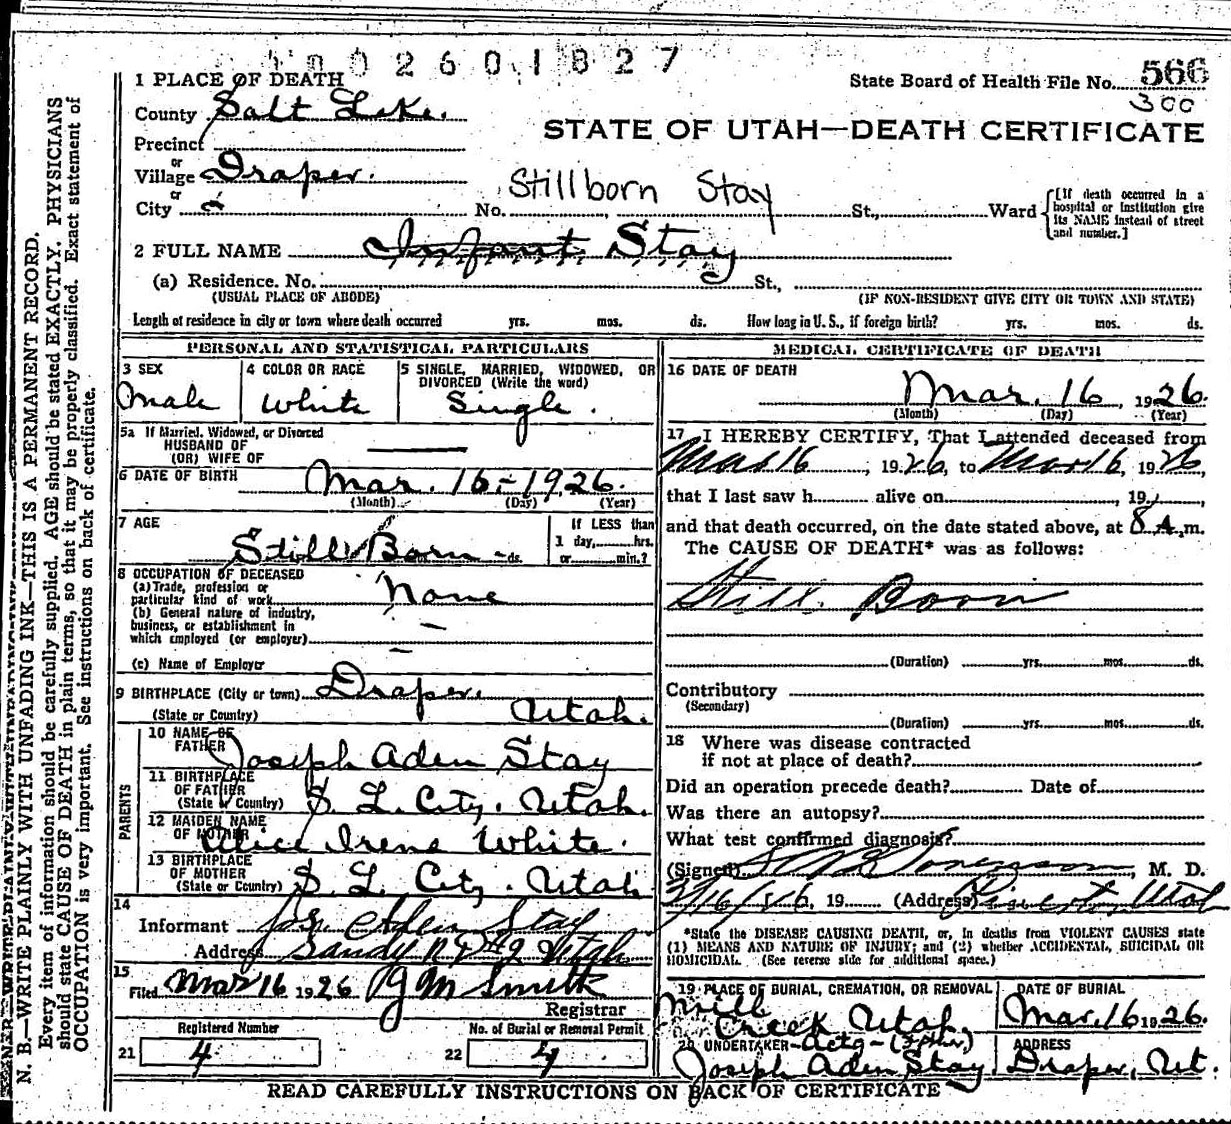 0 0 2 6 0 1 8 2 7
State Board of Health File No. 566
300
STATE OF UTAH—DEATH CERTIFICATE
1 PLACE OF DEATH
County Salt Lake.
Precinct
or
Village Draper.
or
City
Stillborn Stay
No. St., Ward
[If death occurred in a hospital or institution give its NAME instead of street and number.]
2 FULL NAME Infant Stay
(a) Residence. No. St.,
(USUAL PLACE OF ABODE) (IF NON-RESIDENT GIVE CITY OR TOWN AND STATE)
Length of residence in city or town where death occurred yrs. mos. ds. How long in U. S., if foreign birth? yrs. mos. ds.
PERSONAL AND STATISTICAL PARTICULARS
3 SEX
Male
4 COLOR OR RACE
White
5 SINGLE, MARRIED, WIDOWED, OR
DIVORCED (Write the word)
Single.
5a If Married, Widowed, or Divorced
HUSBAND OF
(OR) WIFE OF
6 DATE OF BIRTH Mar. 16 - 1926.
(Month) (Day) (Year)
7 AGE
Still Born ds.
If LESS than
1 day, hrs.
or min.?
8 OCCUPATION OF DECEASED
(a) Trade, profession or
particular kind of work None
(b) General nature of industry,
business, or establishment in
which employed (or employer)
(c) Name of Employer
9 BIRTHPLACE (City or town) Draper.
(State or Country) Utah.
PARENTS
10 NAME OF
FATHER Joseph Aden Stay
11 BIRTHPLACE
OF FATHER
(State or Country) S. L. City, Utah.
12 MAIDEN NAME
OF MOTHER Alice Irene White.
13 BIRTHPLACE
OF MOTHER
(State or Country) S. L. City. Utah
14
Informant Jos. Aden Stay
Address Sandy R #2 Utah
15
Filed Mar 16 1926 Smith
Registrar
Registered Number
21 4
No. of Burial or Removal Permit
22 4
MEDICAL CERTIFICATE OF DEATH
16 DATE OF DEATH
Mar. 16, 1926.
(Month) (Day) (Year)
17 I HEREBY CERTIFY, That I attended deceased from
Mar 16, 1926, to Mar 16, 1926,
that I last saw h alive on , 19
and that death occurred, on the date stated above, at 8 A.m.
The CAUSE OF DEATH* was as follows:
Still Born
(Duration) yrs. mos. ds.
Contributory
(Secondary)
(Duration) yrs. mos. ds.
18 Where was disease contracted
if not at place of death?
Did an operation precede death? Date of
Was there an autopsy?
What test confirmed diagnosis?
(Signed) , M. D.
3/16/26, 19 (Address) Riverton, Utah
*State the DISEASE CAUSING DEATH, or, in deaths from VIOLENT CAUSES state
(1) MEANS AND NATURE OF INJURY; and (2) whether ACCIDENTAL, SUICIDAL OR
HOMICIDAL. (See reverse side for additional space.)
19 PLACE OF BURIAL, CREMATION, OR REMOVAL
Mill
Creek Utah.
DATE OF BURIAL
Mar. 16 1926.
20 UNDERTAKER-Actg-(Father)
Joseph Aden Stay
ADDRESS
Draper, Ut.
READ CAREFULLY INSTRUCTIONS ON BACK OF CERTIFICATE
N. B.—WRITE PLAINLY WITH UNFADING INK—THIS IS A PERMANENT RECORD.
Every item of information should be carefully supplied. AGE should be stated EXACTLY. PHYSICIANS
should state CAUSE OF DEATH in plain terms, so that it may be properly classified. Exact statement of
OCCUPATION is very important. See instructions on back of certificate.